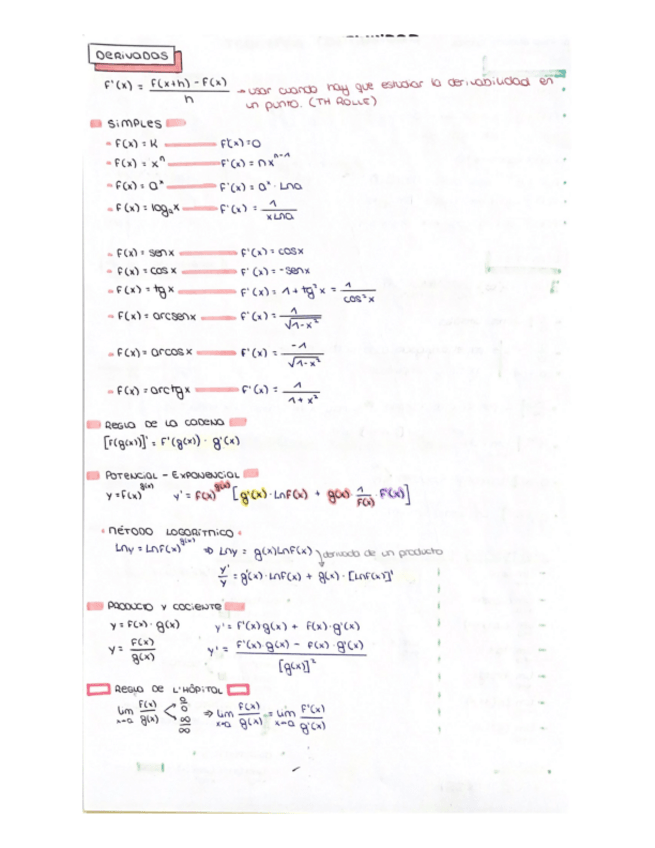 DERIVADAS
F'(x) = F(x+h) - F(x) / h → usar cuando hay que estudiar la derivabilidad en
un punto. (TH ROLLE)
SIMPLES
F(x) = K F'(x) = 0
F(x) = xⁿ F'(x) = nxⁿ⁻¹
F(x) = aˣ F'(x) = aˣ · Lna
F(x) = logₐx F'(x) = 1 / xLna
F(x) = senx F'(x) = cosx
F(x) = cosx F'(x) = -senx
F(x) = tgx F'(x) = 1 + tg²x = 1 / cos²x
F(x) = arcsenx F'(x) = 1 / √1-x²
F(x) = arcosx F'(x) = -1 / √1-x²
F(x) = arctgx F'(x) = 1 / 1+x²
REGLA DE LA CADENA
[F(g(x))]' = F'(g(x)) · g'(x)
POTENCIAL - EXPONENCIAL
y = F(x)^g(x) y' = F(x)^g(x) [g'(x) · LnF(x) + g(x) · 1/F(x) · F'(x)]
MÉTODO LOGORÍTMICO
Lny = LnF(x)^g(x) ⇒ Lny = g(x)LnF(x) derivada de un producto
y'/y = g'(x) · LnF(x) + g(x) · [LnF(x)]'
PRODUCTO Y COCIENTE
y = F(x) · g(x) y' = F'(x)g(x) + F(x) · g'(x)
y = F(x)/g(x) y' = F'(x) · g(x) - F(x) · g'(x) / [g(x)]²
REGLA DE L'HÔPITAL
Lim x→a F(x)/g(x) < 0/0 ∞/∞ ⇒ Lim x→a F(x)/g(x) = Lim x→a F'(x)/g'(x)